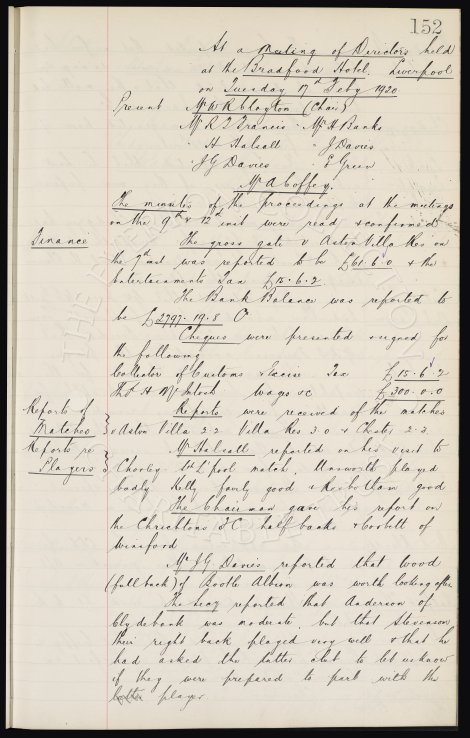 152
At a Meeting of Directors held
at the Bradford Hotel. Liverpool
on Tuesday 17th Feby 1920
Present Mr W R Clayton (Chair)
Mr R T Francis · Mr A Banks
" H Halsall " J Davies
" J G Davies " E Green
Mr A Coffey.
The minutes of the proceedings at the meetings
on the 9th & 12th inst were read & confirmed
Finance
The gross gate v Aston Villa Res on
the 9th inst was reported to be £61. 6. 0 & the
Entertainments Tax £15. 6. 2
The Bank Balance was reported to
be £2797. 19. 8 O
Cheques were presented & signed for
the following
Collector of Customs & Excise Tax £15. 6. 2
Thos H McIntosh wages &c £300. 0. 0
Reports of
Matches
Reports were received of the matches
v Aston Villa 2-2 Villa Res 3.0 & Chester 2.3.
Reports re
Players
Mr Halsall reported on his visit to
Chorley v L'pool match, Unsworth played
badly Kelly fairly good & Rowbotham good
The Chairman gave his report on
the Chrichtons F C half backs & Corbett of
Winsford
Mr J G Davies reported that Wood
(full back) of Bootle Albion was worth looking after
The Secy reported that Anderson of
Clydebank was moderate, but that Stevenson
their right back played very well & that he
had asked the latter club to let us know
if they were prepared to part with the
player